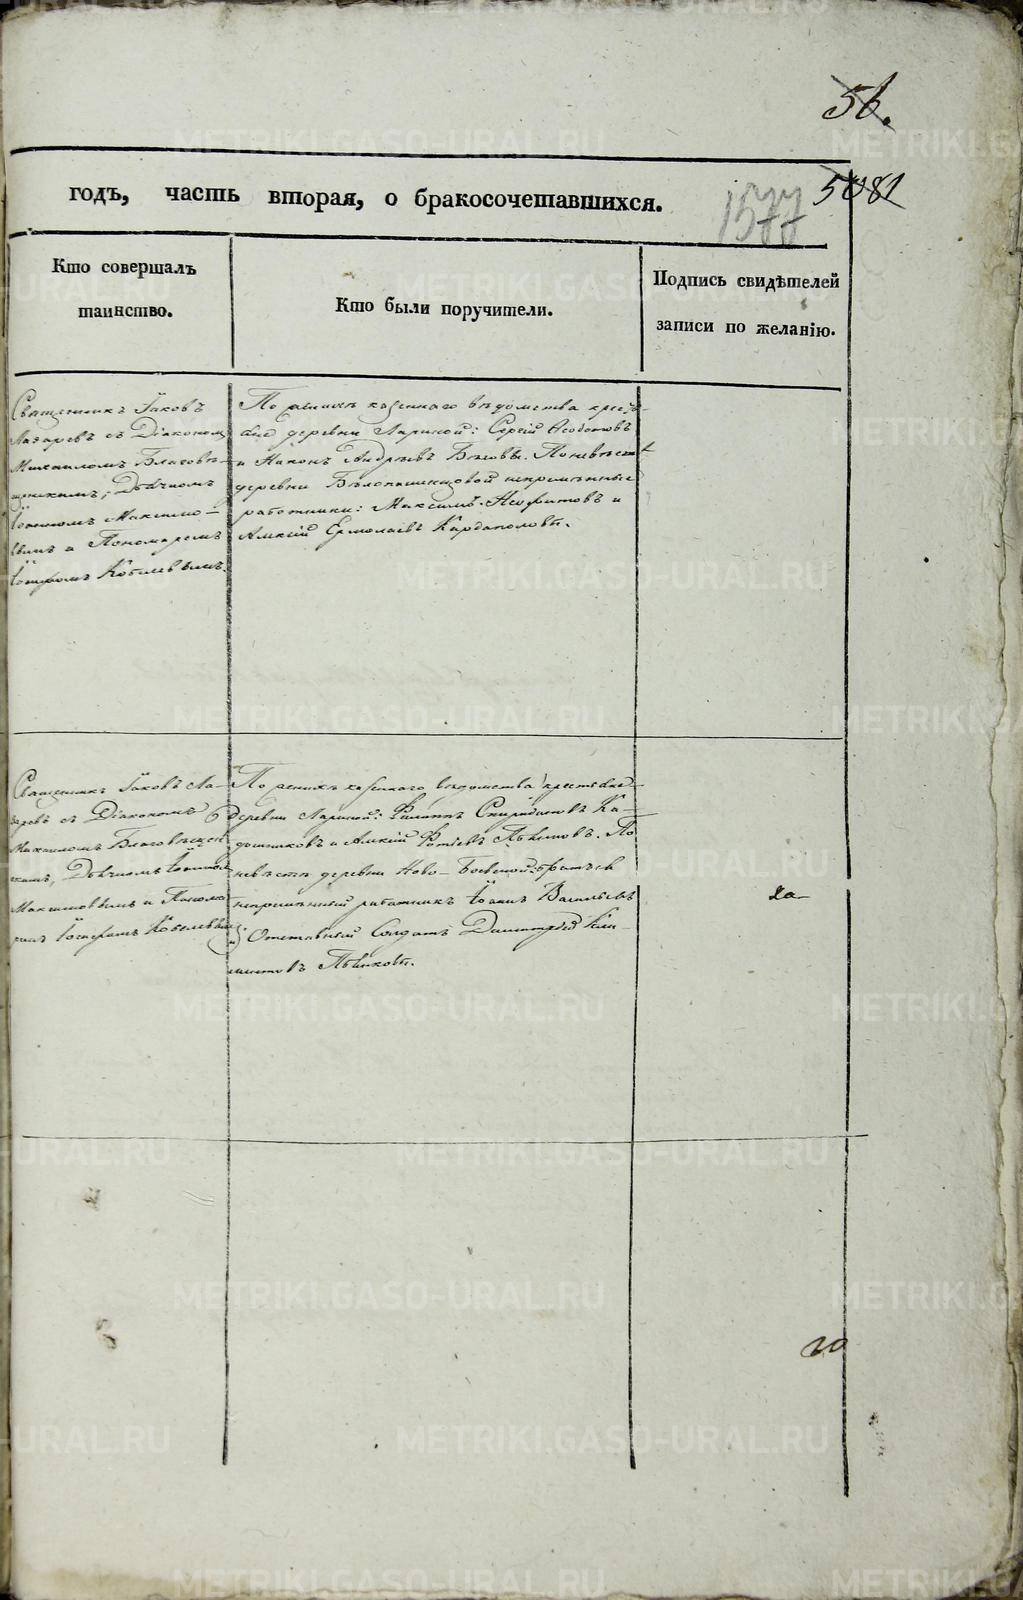 56.
5081
1577
годъ, часть вторая, о бракосочетавшихся.
Кто совершалъ
таинство.
Кто были поручители.
Подпись свидѣтелей
записи по желанію.
Священникъ Іаковъ
Лазаревъ съ Діакономъ
Михаиломъ Благовѣ-
щенскимъ, Дьячкомъ
Іоанномъ Максимо-
вымъ и Пономаремъ
Кобелевымъ.
По женихѣ казеннаго вѣдомства кресть-
яне деревни Лариной: Сергій Ѳедотовъ
и Никонъ Андрѣевъ Бѣговы. По невѣстѣ
деревни непремѣнные
работники: Максимъ Неофитовъ и
Алексій Ермолаевъ Кардаполовы.
Священникъ Іаковъ Ла-
заревъ съ Діакономъ
Михаиломъ Благовѣщен-
скимъ, Дьячкомъ Іоанномъ
Максимовымъ и Понома-
Кобелевымъ
По женихѣ казеннаго вѣдомства крестьяне
деревни Лариной: Филиппъ Спиридоновъ Ка-
и Алексій Фотіевъ По
невѣстѣ деревни Ново-
непремѣнный работникъ Іоаннъ Васильевъ
и Отставный Солдатъ Димитрій Кли-
ментовъ Пьянковы.
METRIKI.GASO-URAL.RU